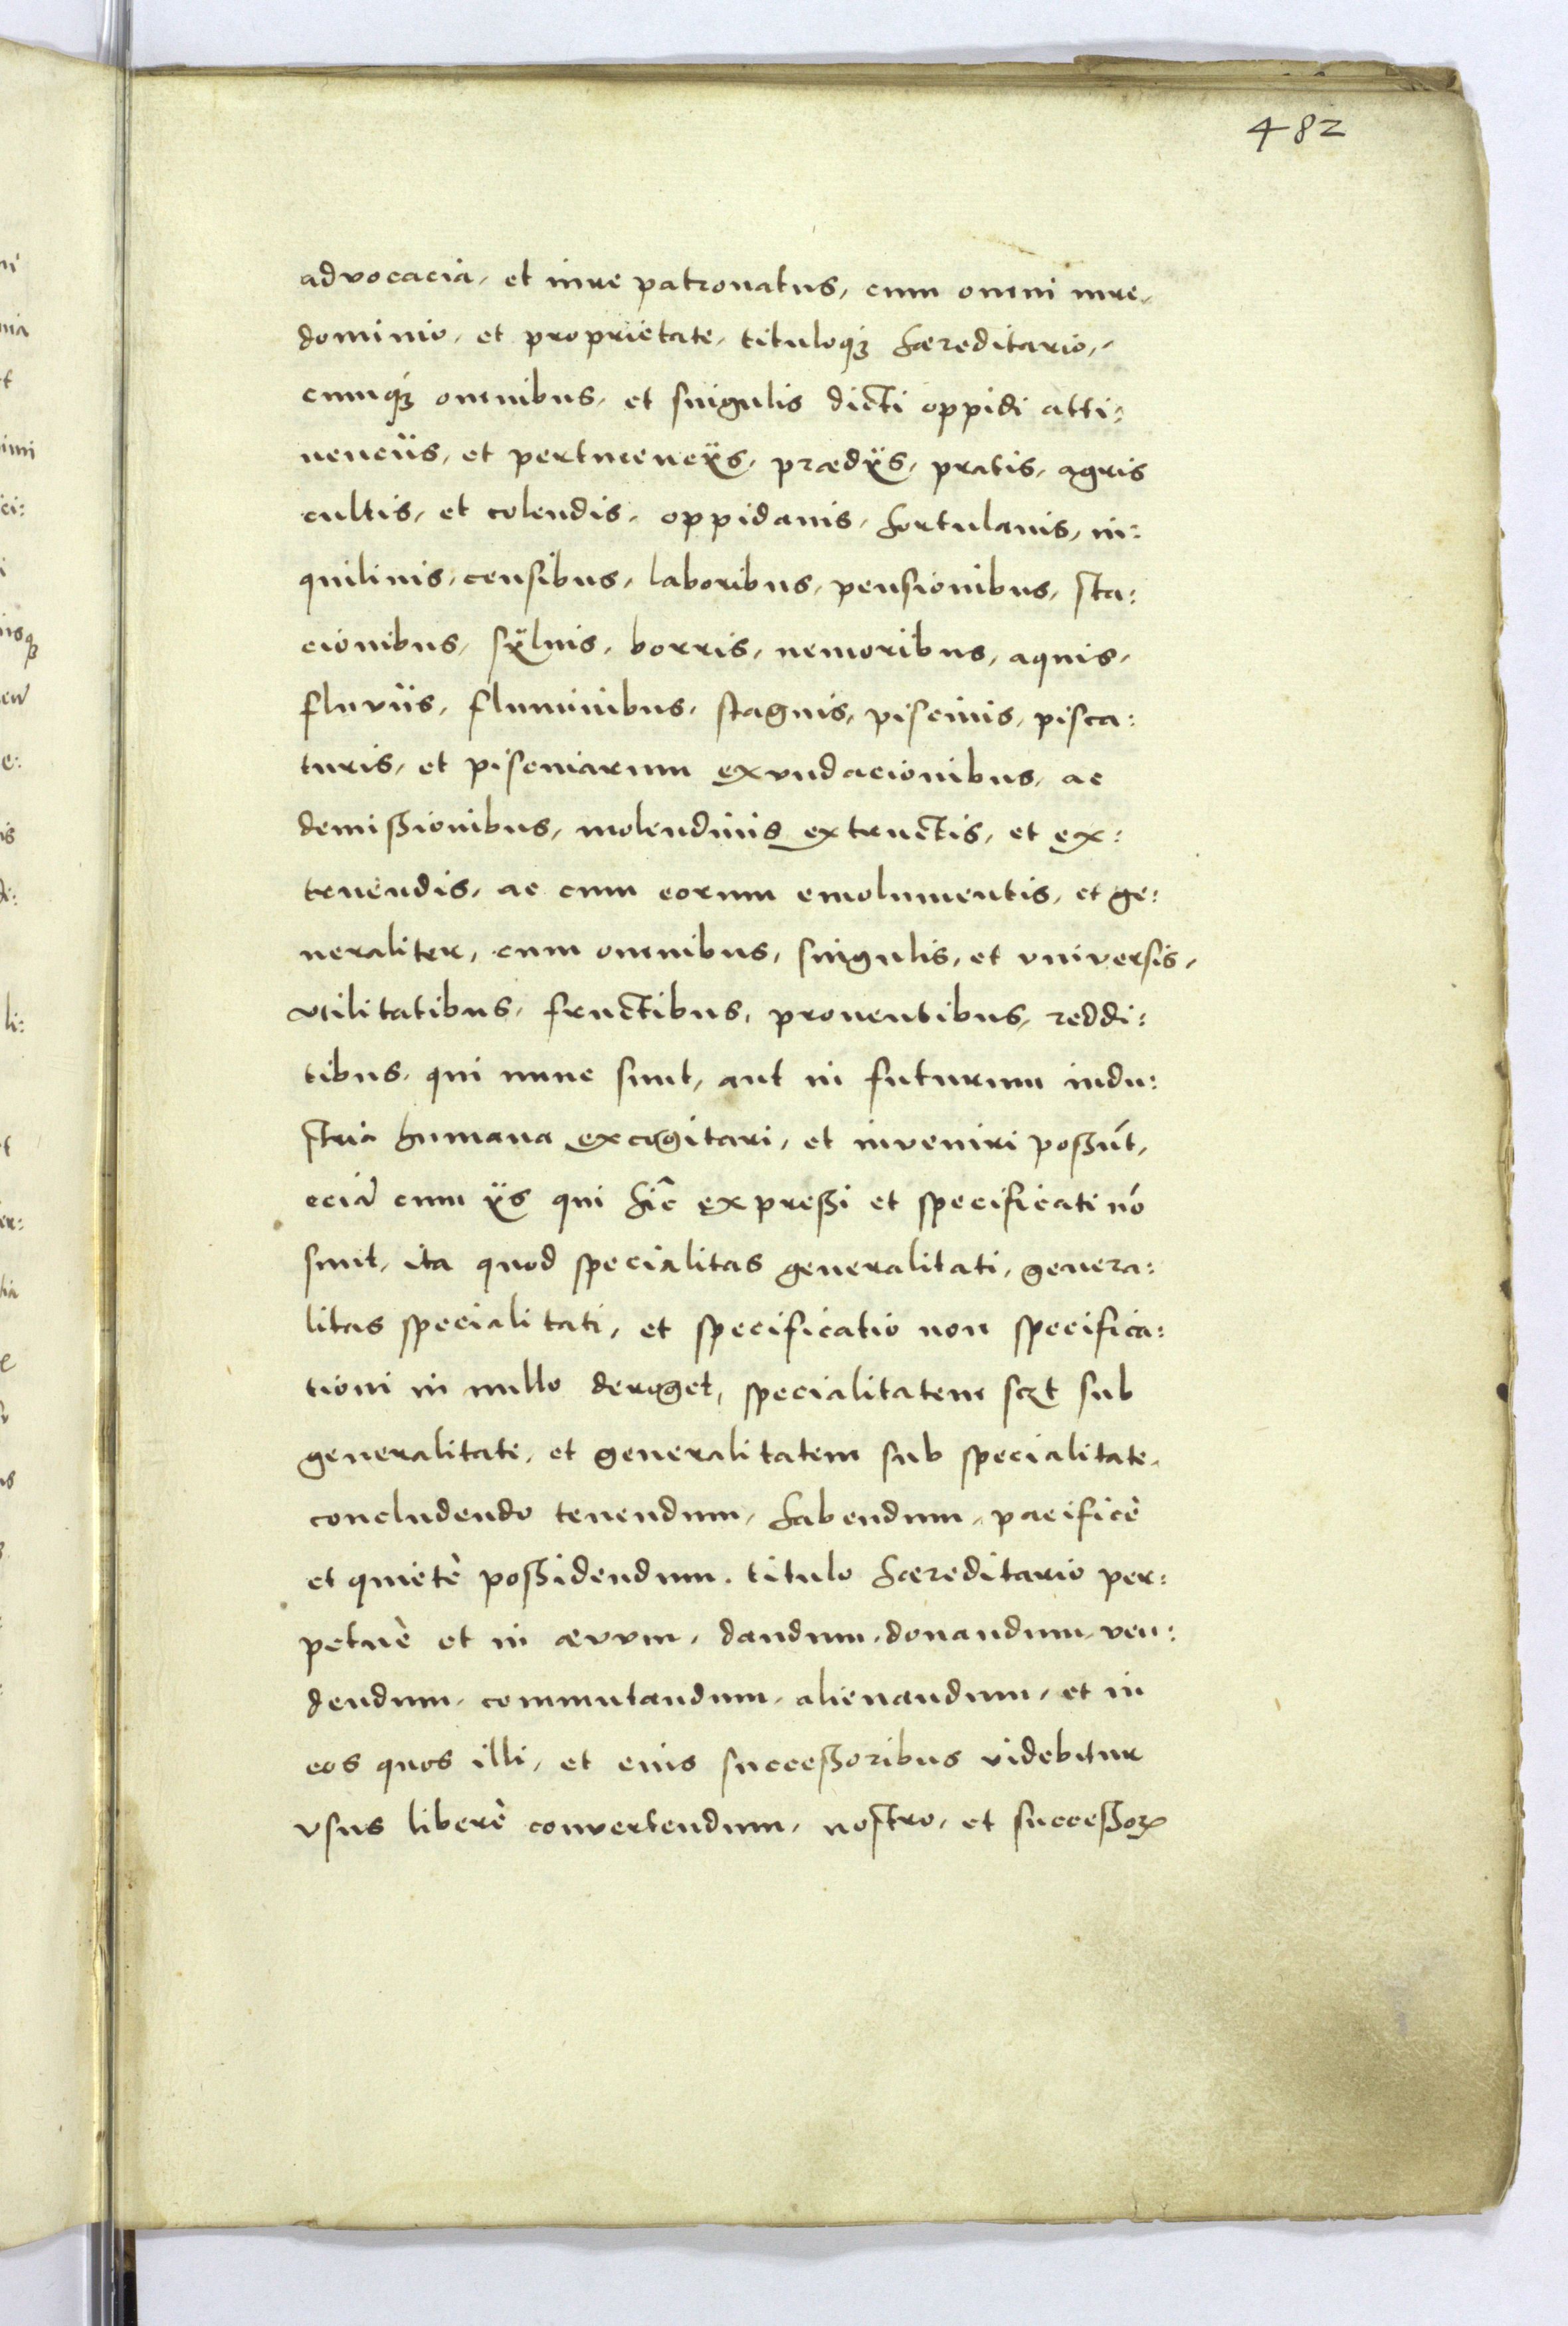 482
advocacia, et iure patronatus, cum omni iure,
dominio, et proprietate, tituloqꝫ haereditario,
cumqꝫ omnibus, et singulis dicti oppidi atti:
nenciis, et pertinencÿs, praedÿs, pratis, agris
cultis, et colendis, oppidanis, hortulanis, in:
quilinis, censibus, laboribus, pensionibus, sta:
cionibus, sÿluis, borris, nemoribus, aquis,
fluviis, fluminibus, stagnis, piscinis, pisca:
turis, et piscinarum exundacionibus, ac
demißionibus, molendinis extructis, et ex:
truendis, ac cum eorum emolumentis, et ge:
neraliter, cum omnibus, singulis, et vniversis,
vtilitatibus, fructibus, proventibus, reddi:
tibus, qui nunc sunt, aut in futurum indu:
stria humana excogitari, et inveniri poßūt,
eciā cum ÿs qui hic expreßi et specificati nō
sunt, ita quod specialitas generalitati, genera:
litas specialitati, et specificatio non specifica:
tioni in nullo deroget, specialitatem sczt sub
generalitate, et generalitatem sub specialitate,
concludendo tenendum, habendum, pacificè
et quietè poßidendum, titulo haereditario per:
petuè et in aevvm, dandum, donandum, ven:
dendum, commutandum, alienandum, et in
eos quos illi, et eius succeßoribus videbitur
vsus liberè convertendum, nostro, et succeßoꝝ